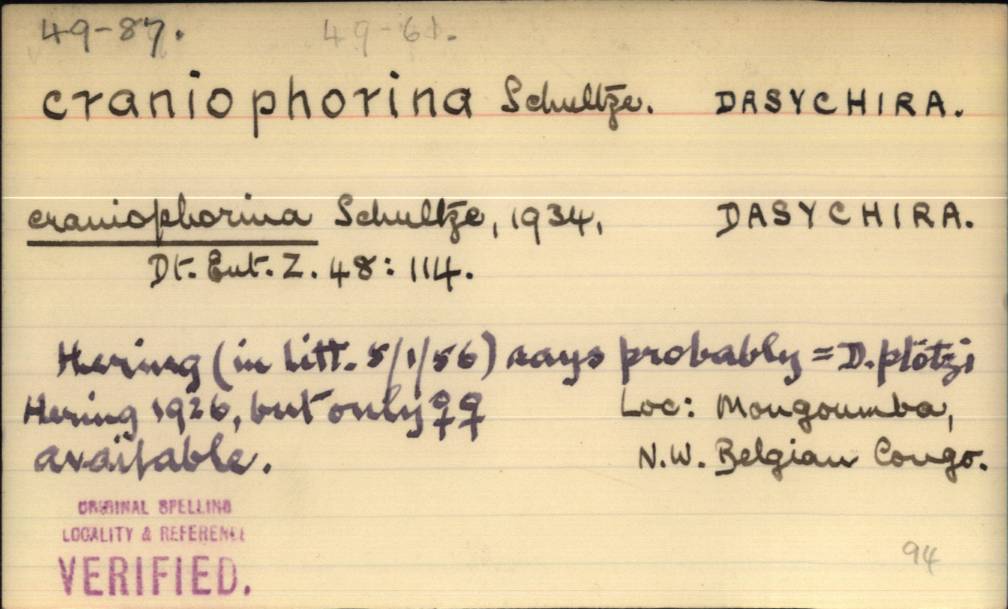 49-87. 49-61.
craniophorina Schultze. DASYCHIRA.
craniophorina Schultze, 1934, DASYCHIRA.
Dt. Ent. Z. 48: 114.
Hering (in litt. 5/1/56) says probably = D. plötzi
Hering 1926, but only ♀♀ Loc: Mongoumba,
available. N.W. Belgian Congo.
ORIGINAL SPELLING
LOCALITY & REFERENCE
VERIFIED.
94